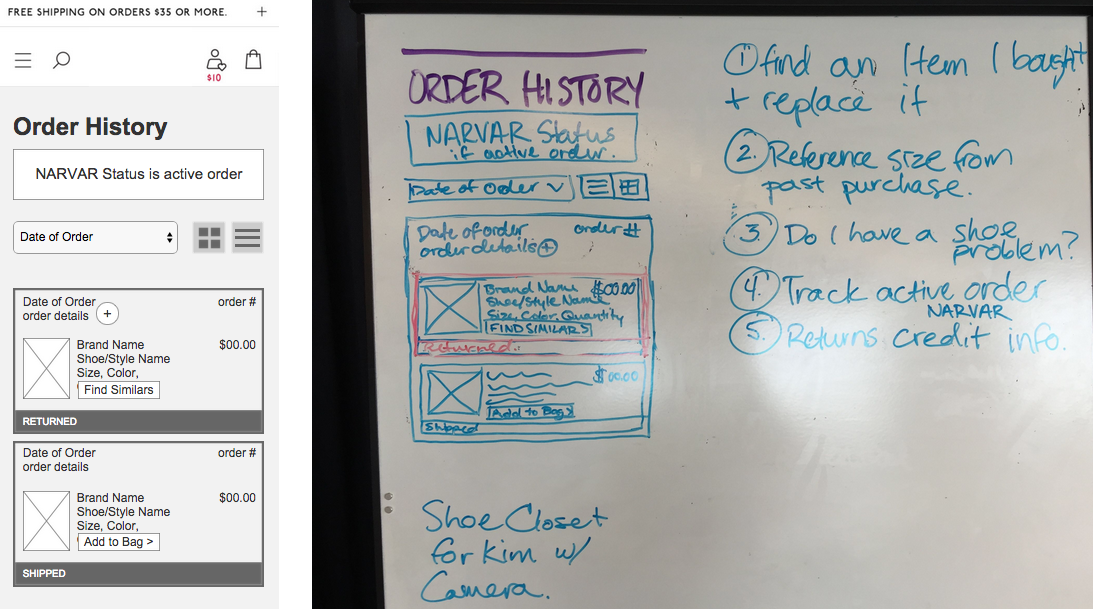 FREE SHIPPING ON ORDERS $35 OR MORE. +
$10
Order History
NARVAR Status is active order
Date of Order
Date of Order order #
order details +
Brand Name $00.00
Shoe/Style Name
Size, Color,
Find Similars
RETURNED
Date of Order order #
order details
Brand Name $00.00
Shoe/Style Name
Size, Color,
Add to Bag >
SHIPPED
ORDER HISTORY
NARVAR Status
if active order.
Date of Order
Date of order order #
order details +
Brand Name $00.00
Shoe/Style Name
Size, Color, Quantity
FIND SIMILARS
Returned..
$00.00
Add to Bag >
Shipped
1 find an Item I bought
+ replace it
2. Reference size from
past purchase.
3. Do I have a shoe
problem?
4. Track active order
NARVAR
5. Returns credit info.
Shoe Closet
for Kim w/
Camera.